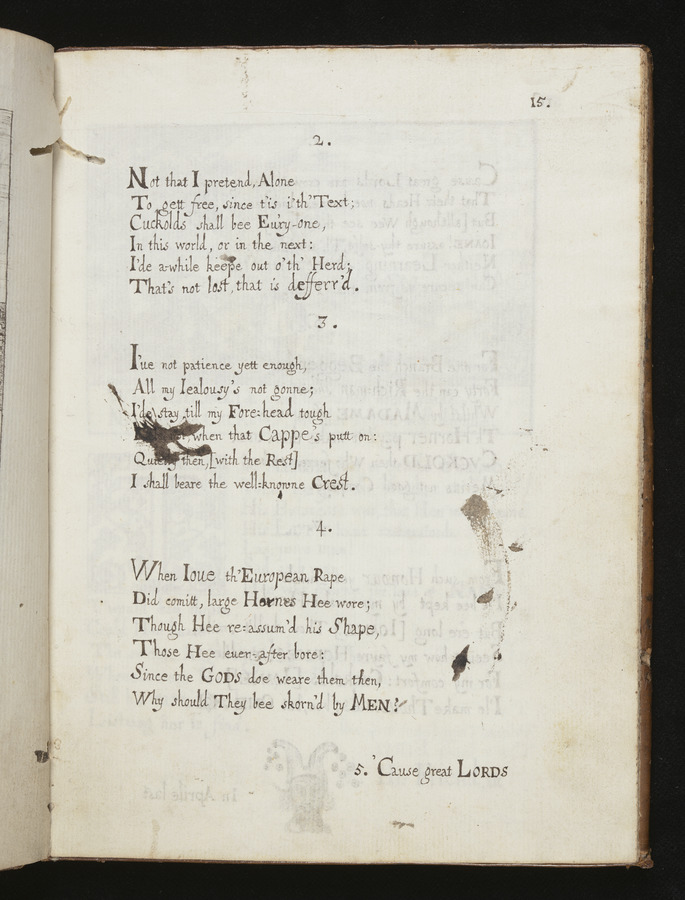 15.
2.
Not that I pretend, Alone
To gett free, since t'is i'th' Text;
Cuckolds shall bee Eu'ry-one,
In this world, or in the next:
I'de a-while keepe out o'th' Herd;
That's not lost, that is defferr'd.
3.
I'ue not patience yett enough,
All my Iealousy's not gonne;
I'de stay till my Fore=head tough
when that Cappe's putt on:
then, [with the Rest]
I shall beare the well=knowne Crest.
4.
When Ioue th'European Rape
Did comitt, large Hornes Hee wore;
Though Hee re=assum'd his Shape,
Those Hee euer-after bore:
Since the GODS doe weare them then,
Why should They bee skorn'd by MEN?
5. 'Cause great LORDS